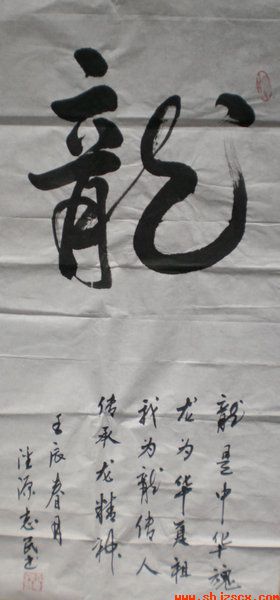 龍
龍是中华魂
龙为华夏祖
我为龍传人
传承龙精神
壬辰春月
源志民